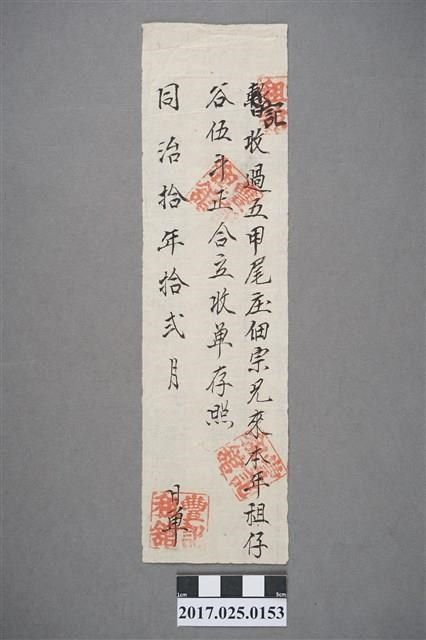 暫記收過五甲尾庄佃宗兄來本年租仔
谷伍斗正合立收单存照
同治拾年拾弍月 日单
豐記
租舘
1cm 5cm
2017.025.0153